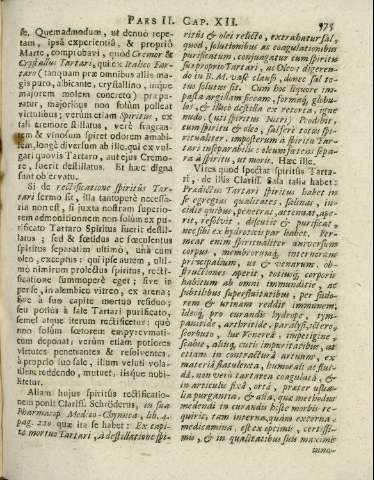 PARS II. CAP. XII.
se. Quemadmodum, ut denuò repe-
tam, ipsâ experientiâ, & propriô
Marte, comprobavi, quod Cremor &
Crystallus Tartari, qui ex Italico Tar-
taro (tanquam præ omnibus aliis ma-
gis puro, albicante, crystallino, inque
majorem molem concreto) præpa-
ratur, majoribus non solùm polleat
virtutibus; verùm etiam Spiritus, ex
tali cremore stillatus, verè fragran-
tem & vinosum spiret odorem amabi-
lem, longè diversum ab ille, qui ex vul-
gari quovis Tartaro, aut ejus Cremo-
re, fuerit destillatus. Et hæc digna
sunt observatu.
Si de rectificatione spiritûs Tar-
tari sermo sit, illa tantoperè necessa-
ria non est, si juxta nostram superio-
rem admonitionem non solùm ex pu-
rificato Tartaro Spiritus fuerit destil-
latus; sed & fœtidus ac fœculentus
spiritus separatim ultimò, unà cum
oleo, exceptus: qui ipse autem, ulti-
mò nimirum prolectus spiritus, recti-
ficatione summoperè eget; sive in
per se, in alembico vitreo, ex arena
sive à suo capite mortuo residuo;
seu potiùs à sale Tartari purificato,
semel atque iterum rectificetur: quò
non solùm fœtorem empyreumati-
cum deponat; verùm etiam potiores
virtutes penetrantes & resolventes,
à proprio suo sale, illum veluti vola-
tilem reddendo, mutuet, iisque nobi-
litetur.
Aliam hujus spiritûs rectificatio-
nem ponit Clariss. Schröderus, in sua
Pharmacop. Medico-Chymica, lib. 4.
pag. 220. quæ ita se habet: Ex capi-
te mortuo Tartari, à destillatione spi-
ritûs & olei relicto, extrahatur sal,
quod, solutionibus ac coagulationibus
purificatum, conjugatur cum spiritu
suo proprio Tartari, ac Oleo: digeren-
do in B. M. vase clauso, donec sal to-
tus solutus sit. Cum hoc liquore im-
pasta argillam siccam, formaq; globu-
los, & illico destilla ex retorta, igne
nudo. (uti spiritus Nitri) Prodibit,
cum spiritu & oleo, salsere totus spi-
ritualiter, imposterum à spiritu Tar-
tari inseparabilis: oleum facessi sepa-
ra à spiritu, ut moris. Hæc ille.
Vires quod spectat spiritûs Tarta-
ri, de illis Clariss. Sala talia habet:
Prædictus Tartari spiritus habet in
se egregias qualitates, salinas, in-
cidit quibus, penetrat, attenuat, ape-
rit, resolvit, discutit & purificat,
nec sibi ex hydroticis par habet. Per-
meat enim spiritualiter universum
corpus, membrorumq; internorum
principalium, ut & venarum, ob-
structiones aperit, totiusq; corporis
habitum ab omni immunditie, ac
subtilibus superfluitatibus, per sudo-
rem & urinam reddit immunem;
Ideoq; pro curandis hydrope, tym-
panitide, arthritide, paralysi, ictero,
scorbuto, lue Venerea, impetigine,
scabie, aliisq; cutis impuritatibus, ut
etiam in contracturâ artuum, ex
materia flatulenta, humorali ac fluï-
dâ, non verò tartarea coagulatâ, &
in articulis fixâ, ortâ, præter usua-
lia purgantia, & alia, quæ methodus
medendi in curandis hisce morbis re-
quirit, tam interna, quàm externa,
medicamina, est ex optimis, certissi-
mis, & in qualitatibus sui maximè
tuno-